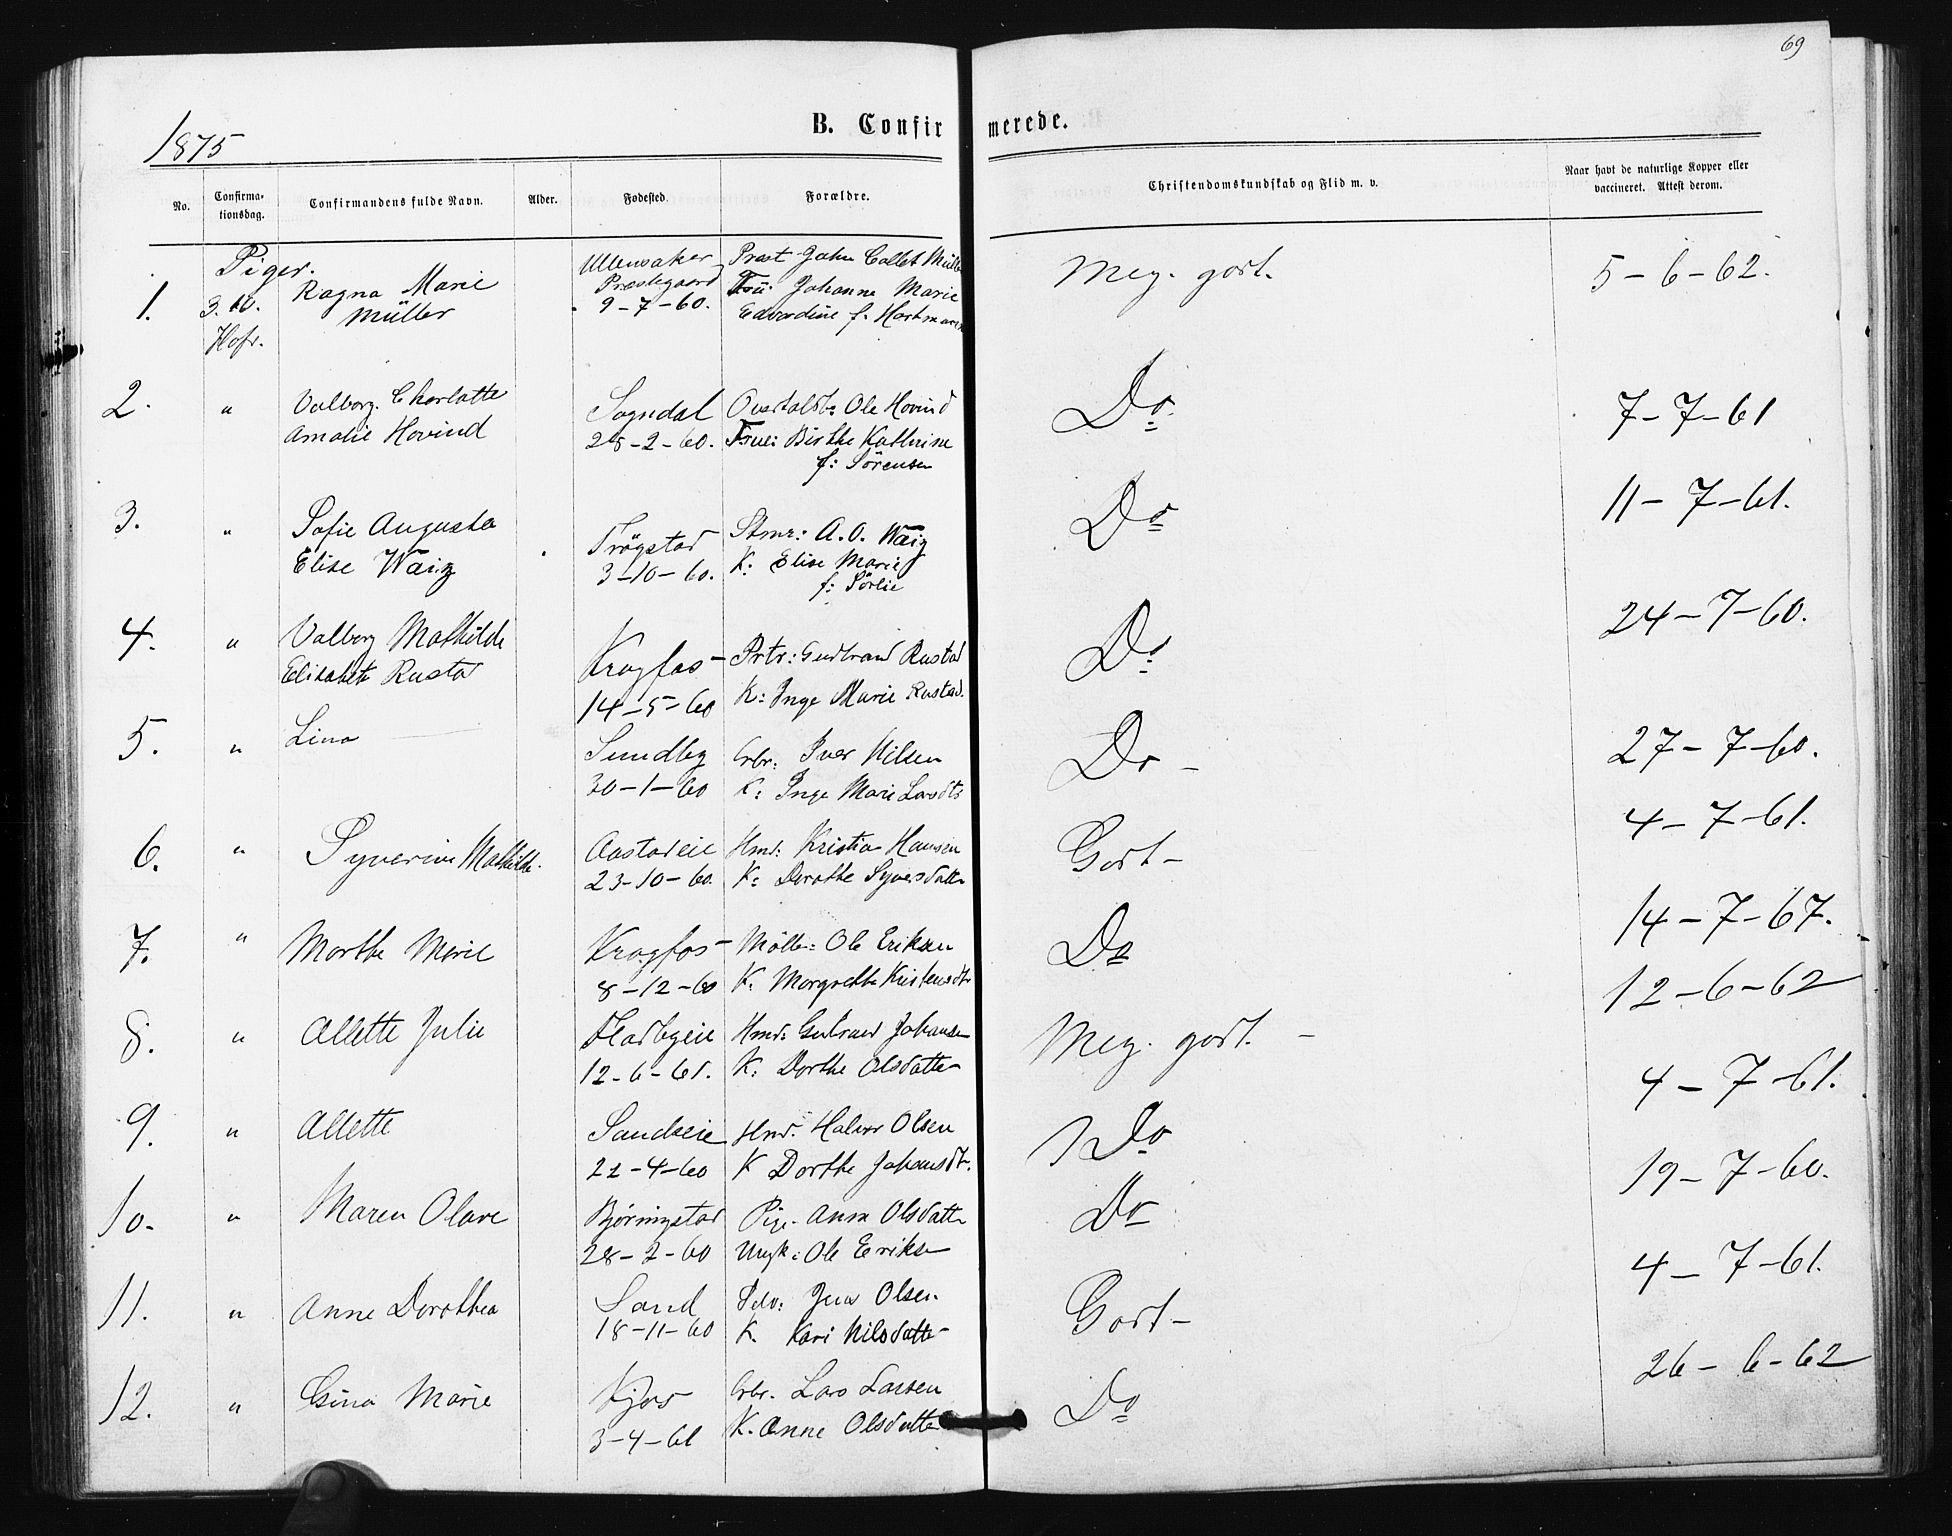 69
1875
B. Confirmerede.
No.
Confirma-
tionsdag.
Confirmandens fulde Navn.
Alder.
Fødested.
Forældre.
Christendomskundskab og Flid m. v.
Naar havt de naturlige Kopper eller
vaccineret. Attest derom.
Piger.
1. 3. 10. Hofr.
Ragna Marie
Müller
Ullensaker
Præstegaard
9-7-60.
Præst John Collet Müller
Fru: Johanne Marie
Edvardine f. Hartmann
Meg. godt.
5-6-62.
2. "
Valborg. Charlotte
Amalie Hovind
Sogndal
28-2-60.
Ole Hovind
Frue: Birthe Kathrine
f: Sörensen
Do
7-7-61
3. "
Sofie Augusta
Elise Waig
Trögstad
3-10-60.
Stmr: A. O. Waig
K: Elise Marie
f: Sörlie
Do
11-7-61.
4. "
Valborg Mathilde
Elisabeth Rustad
Krogfos-
14-5-60
Prtr: Gudbrand Rustad
K: Inge Marie Rustad.
Do
24-7-60.
5. "
Lina
Sundby
30-1-60
Grbr: Iver Nilsen
K: Inge Marie Larsdtr
Do -
27-7-60.
6. "
Syverine Mathilde.
Aastadeie
23-10-60.
Hmd: Kristian Hansen
K: Dorothe Syversdatter
Godt-
4-7-61.
7. "
Marthe Marie
Krogfos-
8-12-60
Mölle: Ole Eriksen
K: Margrethe Kristensdtr
Do
14-7-67.
8. "
Allette Julie
12-6-61.
Hmd: Gulbrand Johansen
K: Dorthe Olsdatter
Meg. godt. -
12-6-62
9. "
Allette
Sandseie
22-4-60
Hmd. Halvor Olsen
K Dorthe Johansdtr.
Do
4-7-61.
10. "
Maren Olave
Bjørningstad
28-2-60
Pige. Anne Olsdatter
Ungk: Ole Eriksen
Do
19-7-60.
11. "
Anne Dorothea
Sand
18-11-60
Selv: Jens Olsen
K. Kari Nilsdatter
Godt-
4-7-61.
12. "
Gina Marie
Kjos
3-4-61
Grbr. Lars Larsen
K. Anne Olsdatter
Do
26-6-62